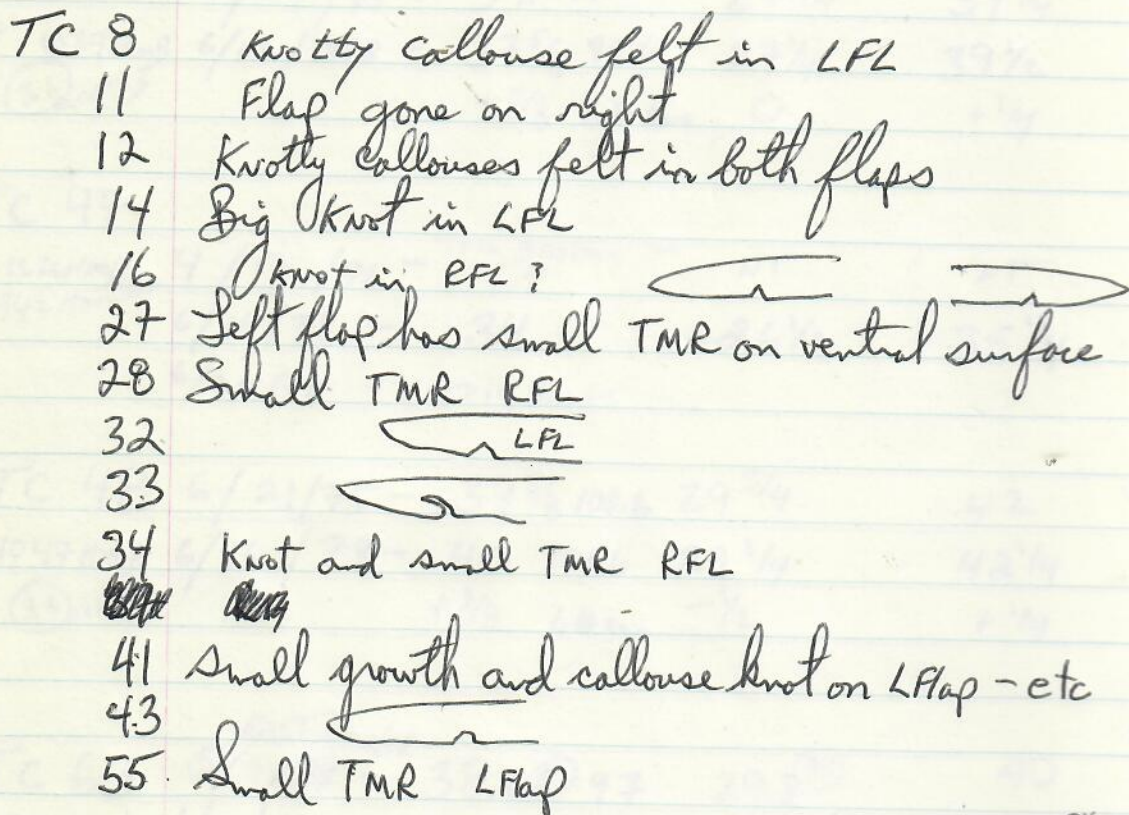 TC 8 Knotty callouse felt in LFL
11 Flap gone on right
12 Knotty callouses felt in both flaps
14 Big Knot in LFL
16 Knot in RFL?
27 Left flap has small TMR on ventral surface
28 Small TMR RFL
32 LFL
33
34 Knot and small TMR RFL
41 small growth and callouse knot on LFlap - etc
43
55. Small TMR LFlap